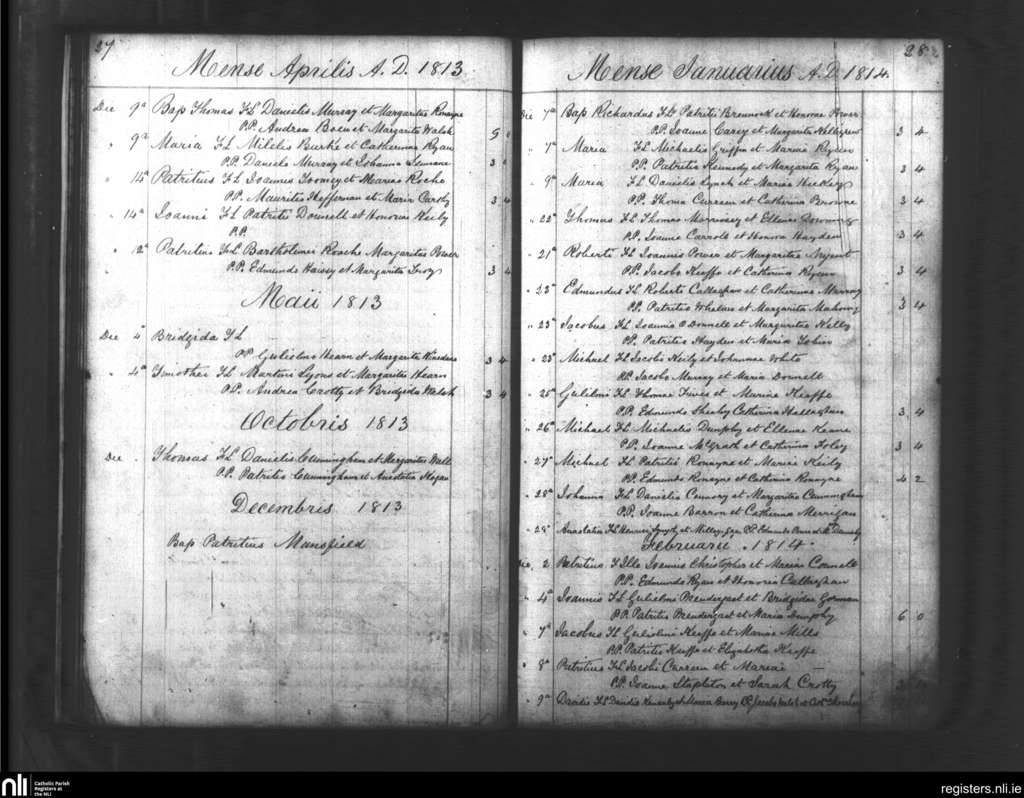 27
Mense Aprilis A.D. 1813
Die 9a Bap Thomas FL Danielis Murray et Margaritæ Ronayne
PP. Andrea et Margarita Walsh 5 0
" 9a Maria FL Milelis Burke et Catherinæ Ryan
PP. Daniele Murray et Johanna 3
" 15a Patritius FL Joannis Toomey et Mariæ Roche
PP. Mauritio Heffernan et Maria Carthy 3 4
" 14a Joanni FL Patritii Donnell et Honoriæ Keily
PP.
" 2a Patritius FL Bartholimei Roache Margaritæ Power
PP. Edmundo et Margarita 3 4
Maii 1813
Die 4a Bridgida FL
PP Gulielmo Hearn et Margarita 3 4
" 4a Timothei FL Martini Lyons et Margaritæ Hearn
PP. Andrea Crotty et Bridgida Walsh 3 4
Octobris 1813
Die . Thomas FL Danielis Cunningham et Margaritæ Wall
PP. Patritio Cunningham et Anastatia Hogan
Decembris 1813
Bap Patritius Mansfield
28
Mense Januarius A.D. 1814.
Die 7a Bap Richardus FL Patritii et Honoræ Power
PP. Joanne Carey et Margarita 3 4
" 7a Maria FL Michaelis Griffin et Mariæ Ryan
PP. Patritio Kennedy et Margarita Ryan 3 4
" 9a Maria FL Danielis Lynch et Mariæ Hickey
PP. Thoma Curreen et Catherina Browne 3 4
" 22a Thomas FL Thomæ Morrissey et Ellenæ Downing
PP. Joanne Carroll et Honora Hayden 3 4
" 21a Roberti FL Joannis Power et Margaritæ Nugent
PP. Jacobo Keeffe et Catherina Ryan 3 4
" 23a Edmundus FL Roberti Callaghan et Catherinæ Murray
PP. Patritio Whelan et Margarita Mahony 3 4
" 23a Jacobus FL Joannis O Donnell et Margaritæ Kelly
PP. Patritio Hayden et Maria Tobin
" 23a Michael FL Jacobi Keily et Johannæ White
PP. Jacobo Murray et Maria Donnell
" 25a Gulielmi FL Thomæ et Mariæ Keeffe
PP. Edmundo Sheehy Catherina Hallaghan 3 4
" 26a Michael FL Michaelis Dunphy et Ellenæ Keane
PP. Joanne McGrath et Catherina Foley 3 4
" 27a Michael FL Patritii Ronayne et Mariæ Keily
PP. Edmundo Ronayne et Catherina Ronayne 4 2
" 28a Johanna FL Danielis Connory et Margaritæ Cunningham
PP. Joanne Barron et Catherina Merrigan
" 28a Anastatia FL
Februarii . 1814
Die 2 Patritius FIlle Joannis Christopher et Mariæ Connell
PP. Edmundo Ryan et Honoria Callaghan
" 4a Joannis FL Gulielmi Prendergast et Bridgidæ Gorman
PP. Patritio Prendergast et Maria Dunphy 6 0
" 7a Jacobus FL Gulielmi Keeffe et Mariæ Mills
PP. Patritio Keeffe et Elizabetha Keeffe
" 8a Patritius FL Jacobi Curreen et Mariæ —
PP. Joanne Stapleton et Sarah Crotty
" 9a Davidis FL
nli
Catholic Parish
Registers at
the NLI
registers.nli.ie